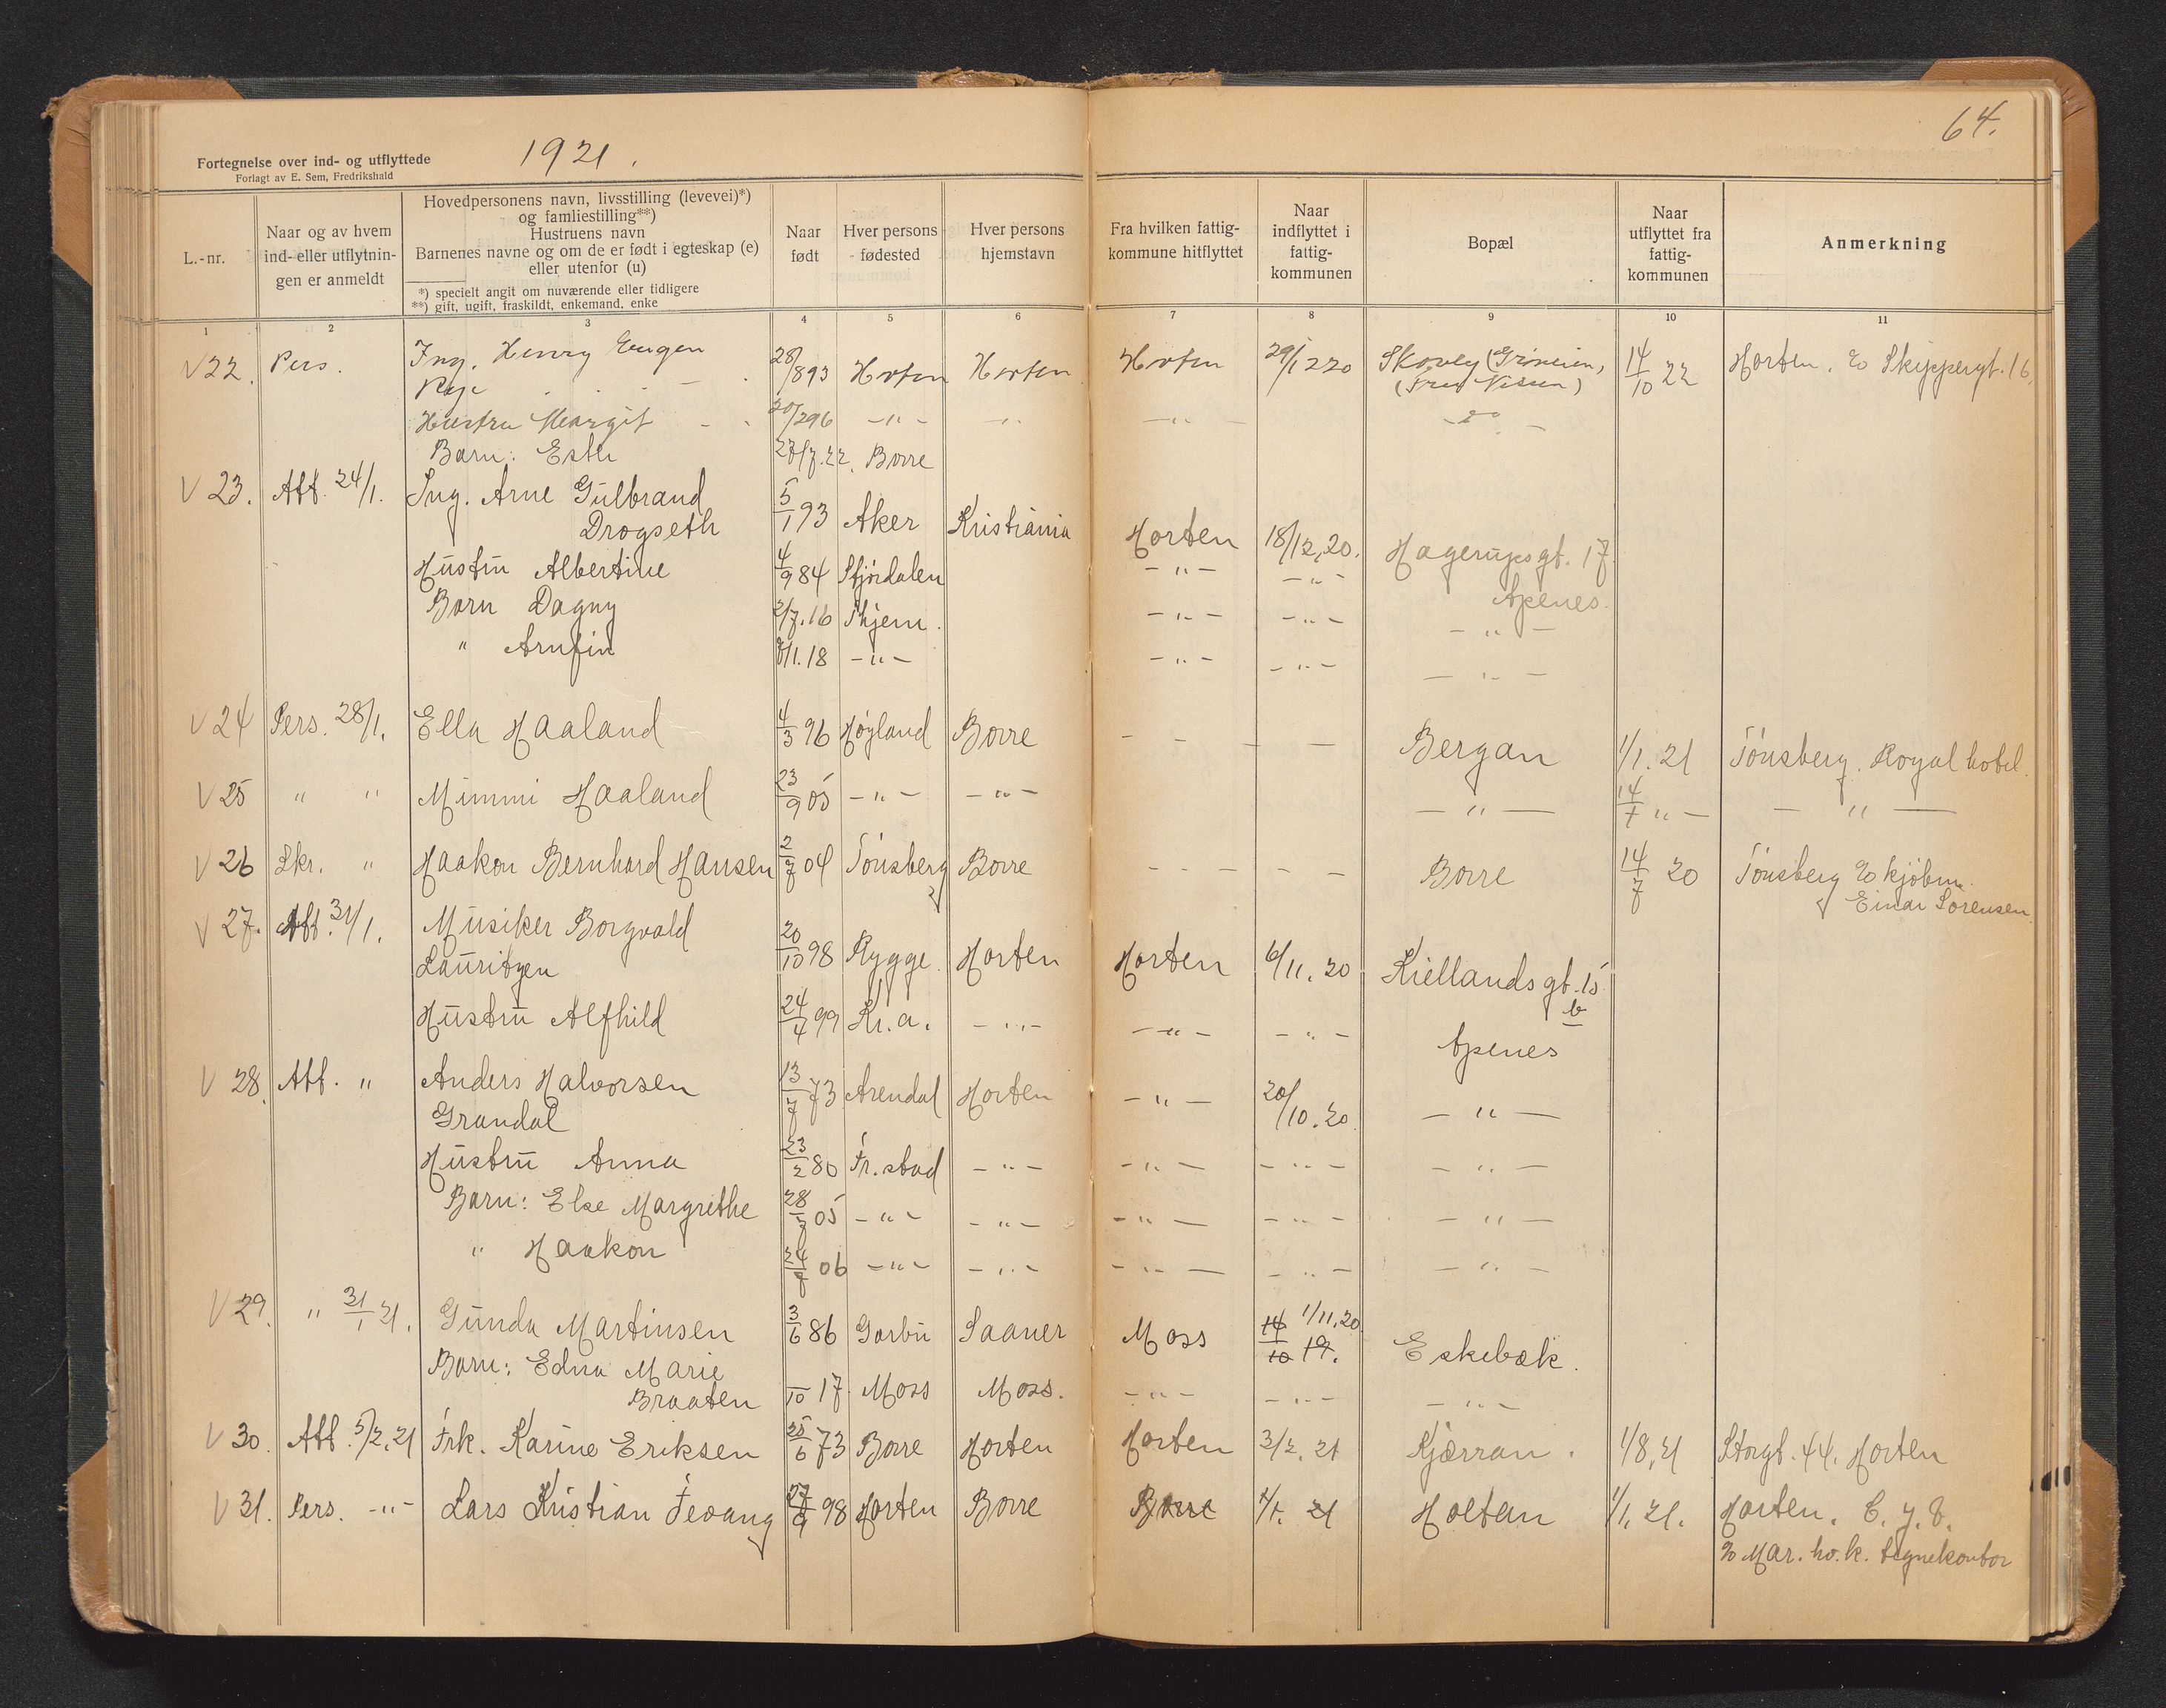 64.
1921.
Fortegnelse over ind- og utflyttede
Forlagt av E. Sem, Fredrikshald
L.-nr.
Naar og av hvem ind- eller utflytnin- gen er anmeldt
Hovedpersonens navn, livsstilling (levevei)*) og famliestilling**) Hustruens navn Barnenes navne og om de er født i egteskap (e) eller utenfor (u)
*) specielt angit om nuværende eller tidligere
**) gift, ugift, fraskildt, enkemand, enke
Naar født
Hver persons fødested
Hver persons hjemstavn
Fra hvilken fattig- kommune hitflyttet
Naar indflyttet i fattig- kommunen
Bopæl
Naar utflyttet fra fattig- kommunen
Anmerkning
1 2 3 4 5 6 7 8 9 10 11
V 22. Pers. Ing. Henry Eugen 28/893 Horten Horten Horten Skovly 14/10 22 Horten. c/o Skippergt. 16.
Hustru Margit 20/296 -"- -"- -"-
Barn: Esth 27/7.22. Borre
V 23. Att. 24/1. Ing. Arne Gülbrand
Drogseth 5/1 93 Aker Kristiania Horten 18/12.20. Hagerupsgt. 17.
Hüstrü Albertine 4/9 84 Stjördalen -"- -"- Apenes.
Barn Dagny 2/7.16 Thjem. -"- -"- -"-
" Arnfin 8/1.18 -"- -"- -"- -"-
V 24 Pers. 28/1. Ella Haaland 4/3 96 Høyland Borre - - - - Bergan 1/1.21 Tönsberg. Royal hotel.
V 25 " " Mimmi Haaland 23/9 05 -"- -"- -"- 14/7 "- -"-
V 26 Skr. " Haakon Bernhard Hansen 2/7 04 Tönsberg Borre - - - - Borre 14/7 20 Tönsberg c/o kjöbm.
Einar Sörensen.
V 27. Att. 31/1. Müsiker Borgvald
Lauritzen 20/10 98 Rygge Horten Horten 6/11.20 Kiellandsgt. 15 b
Hüstrü Alfhild 24/4 99 Kr.a. -"- -"- -"- Apenes
V 28. Att. " Anders Halvorsen 13/7 73 Arendal Horten -"- 20/10.20. -"-
Grandal
Hüstrü Anna 23/2 80 Fr.stad -"- -"- -"- -"-
Barn: Else Margrethe 28/3 05 -"- -"- -"- -"- -"-
" Haakon 24/8 06 -"- -"- -"- -"- -"-
V 29. " 31/1 21. Günda Martinsen 3/6 86 Garbü Saaner Moss 14/10 19. 1/11.20 Eskebæk.
Barn: Edna Marie
Braaten /10 17 Moss Moss. -"- -"- -"-
V 30. Att. 5/2.21 Frk. Karine Eriksen 25/6 73 Borre Horten Horten 3/2.21 Kjærran. 1/8.21 Storgt. 44. Horten
V 31. Pers. -"- Lars Kristian Fevang 98 Horten Borre Borre 1/1. 21 Holtan 1/1.21. Horten.
c/o Mar. ho.k. tegnekontor